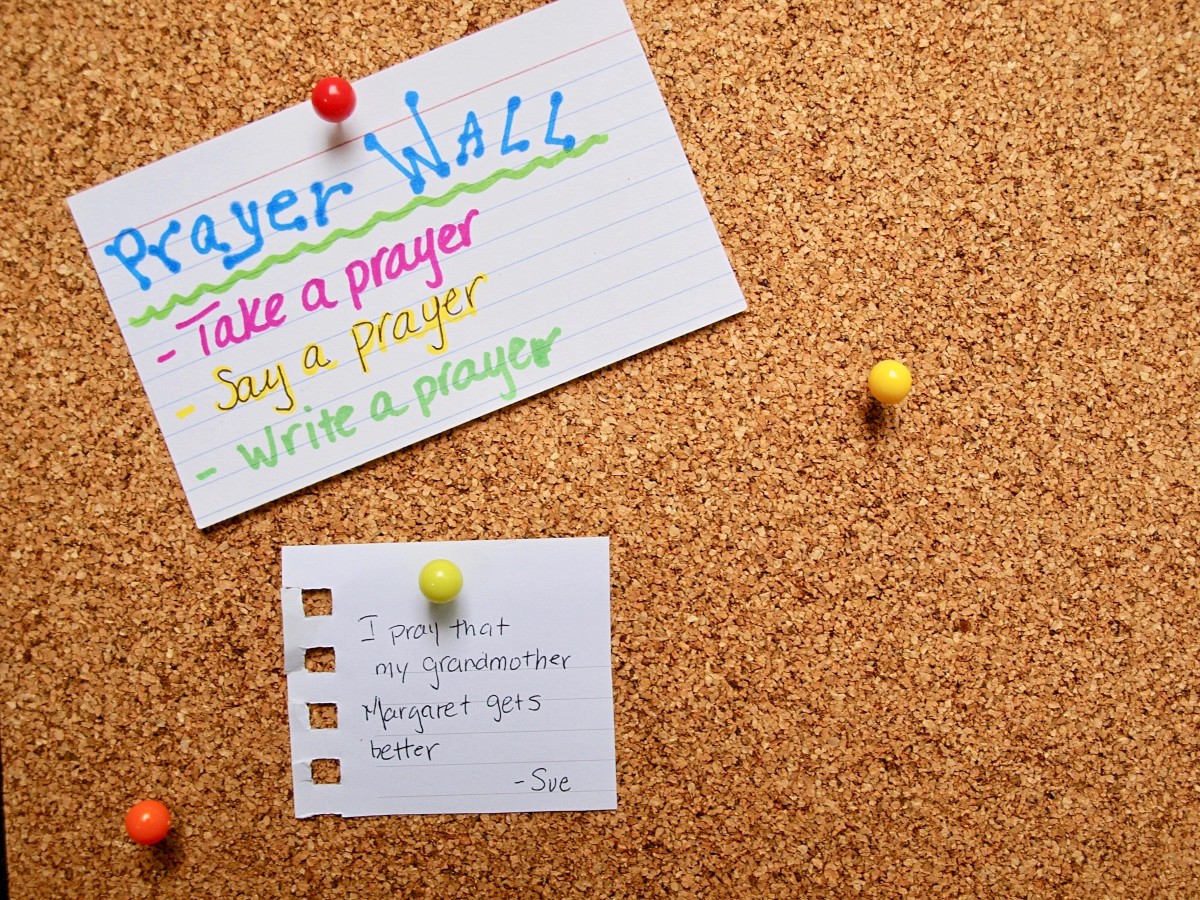 Prayer WALL
- Take a prayer
- Say a prayer
- Write a prayer
I pray that
my grandmother
Margaret gets
better
- Sue